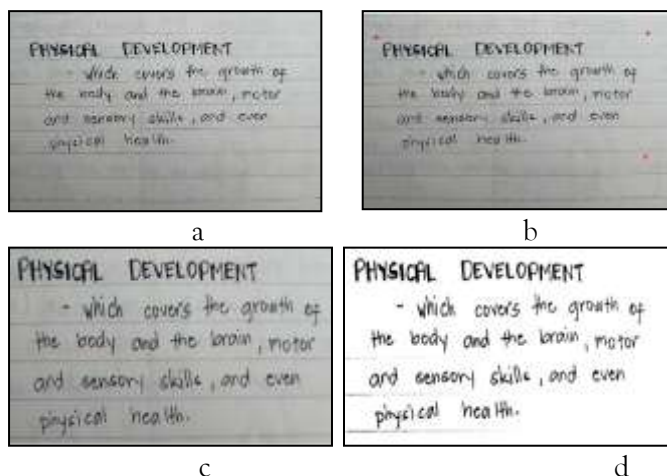 PHYSICAL DEVELOPMENT
- which covers the growth of
the body and the brain, motor
and sensory skills, and even
physical health.
a
PHYSICAL DEVELOPMENT
- which covers the growth of
the body and the brain, motor
and sensory skills, and even
physical health.
b
PHYSICAL DEVELOPMENT
- which covers the growth of
the body and the brain, motor
and sensory skills, and even
physical health.
c
PHYSICAL DEVELOPMENT
- which covers the growth of
the body and the brain, motor
and sensory skills, and even
physical health.
d